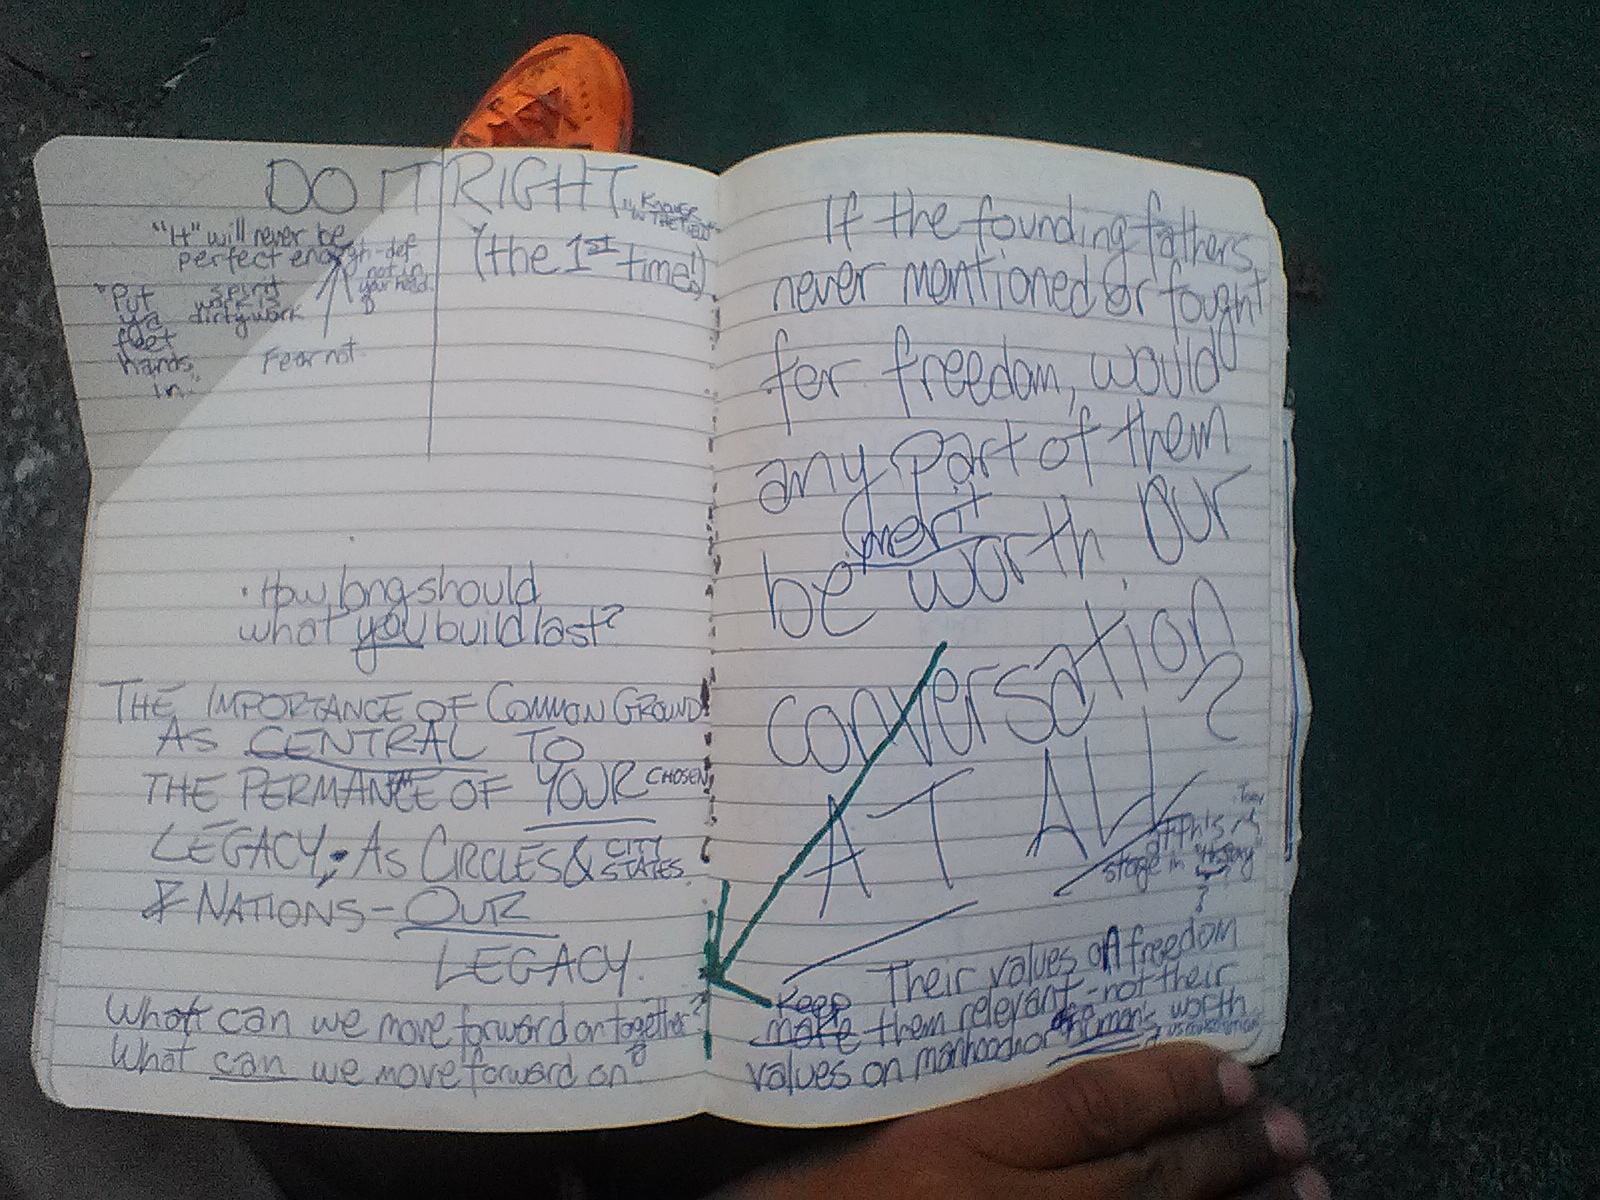 DO IT RIGHT
(the 1st time!)
"It" will never be
perfect enough-def
not in
your head.
"Put
feet
hands
in."
spirit
work is
dirty work
Fear not
· How long should
what you build last?
THE IMPORTANCE OF COMMON GROUND
AS CENTRAL TO
THE PERMANCE OF YOUR CHOSEN
LEGACY; AS CIRCLES & CITY
STATES
& NATIONS - OUR
LEGACY.
What can we move forward on together?
What can we move forward on?
If the founding fathers
never mentioned or fought
for freedom, would
any part of them
merit
be worth our
conversation?
AT ALL
stage in "History"
Their values on freedom
Keep
make them relevant - not their
values on manhood or worth